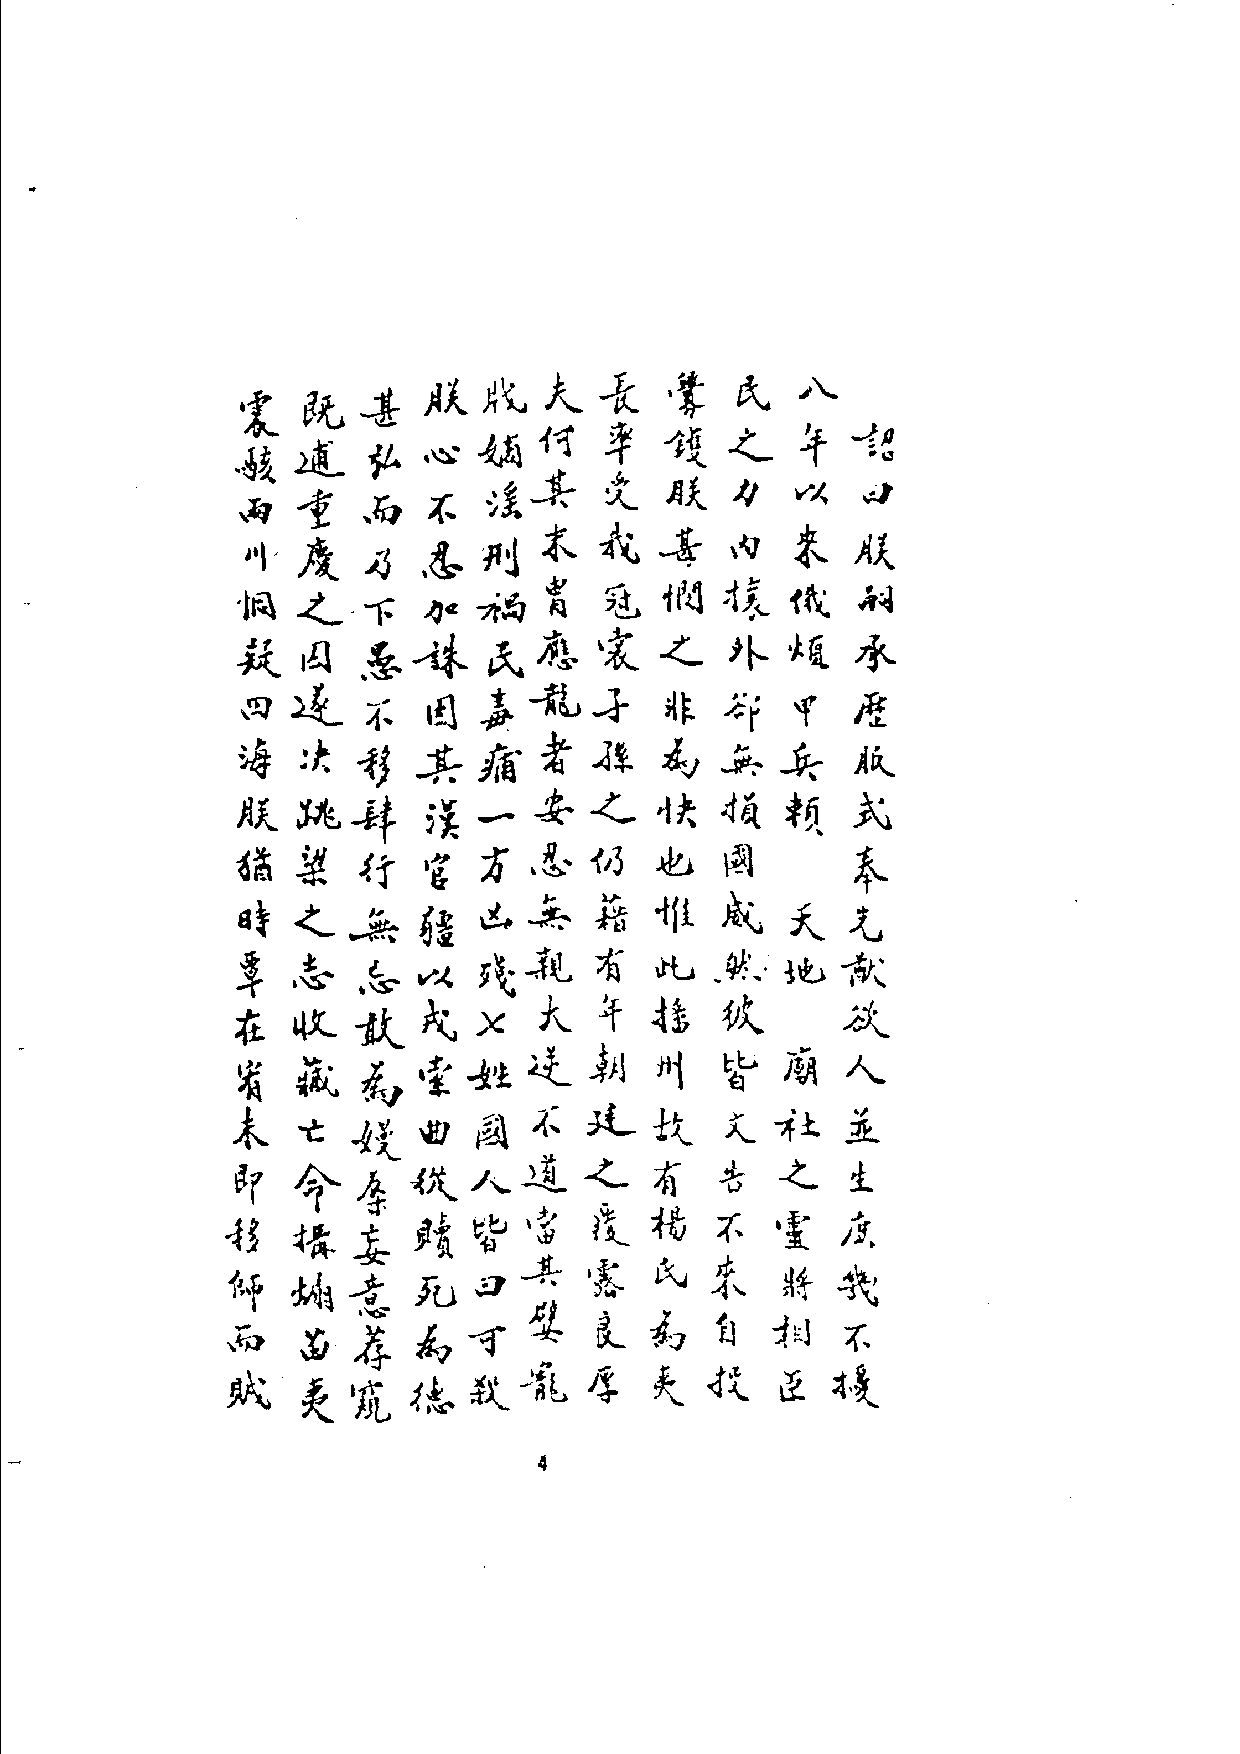 詔曰朕嗣承歷服式奉先猷欲人並生庶幾不擾
八年以來俄煩甲兵賴 天地 廟社之靈將相臣
民之力內攘外卻無損國威然彼皆文告不來自投
釁鑊朕甚憫之非為快也惟此播州故有楊氏為夷
長率受我冠裳子孫之仍藉有年朝廷之覆露良厚
夫何其末胄應龍者安忍無親大逆不道當其嬖寵
戕嫡淫刑禍民毒痡一方凶殘七姓國人皆曰可殺
朕心不忍加誅因其漢官疆以戎索曲從贖死為德
甚弘而乃下愚不移肆行無忘敢為嫚辱妄意荐窺
既逋重慶之囚遂决跳梁之志收藏亡命搆煽苗夷
震駭兩川恫疑四海朕猶時覃在宥未即移師而賊
4